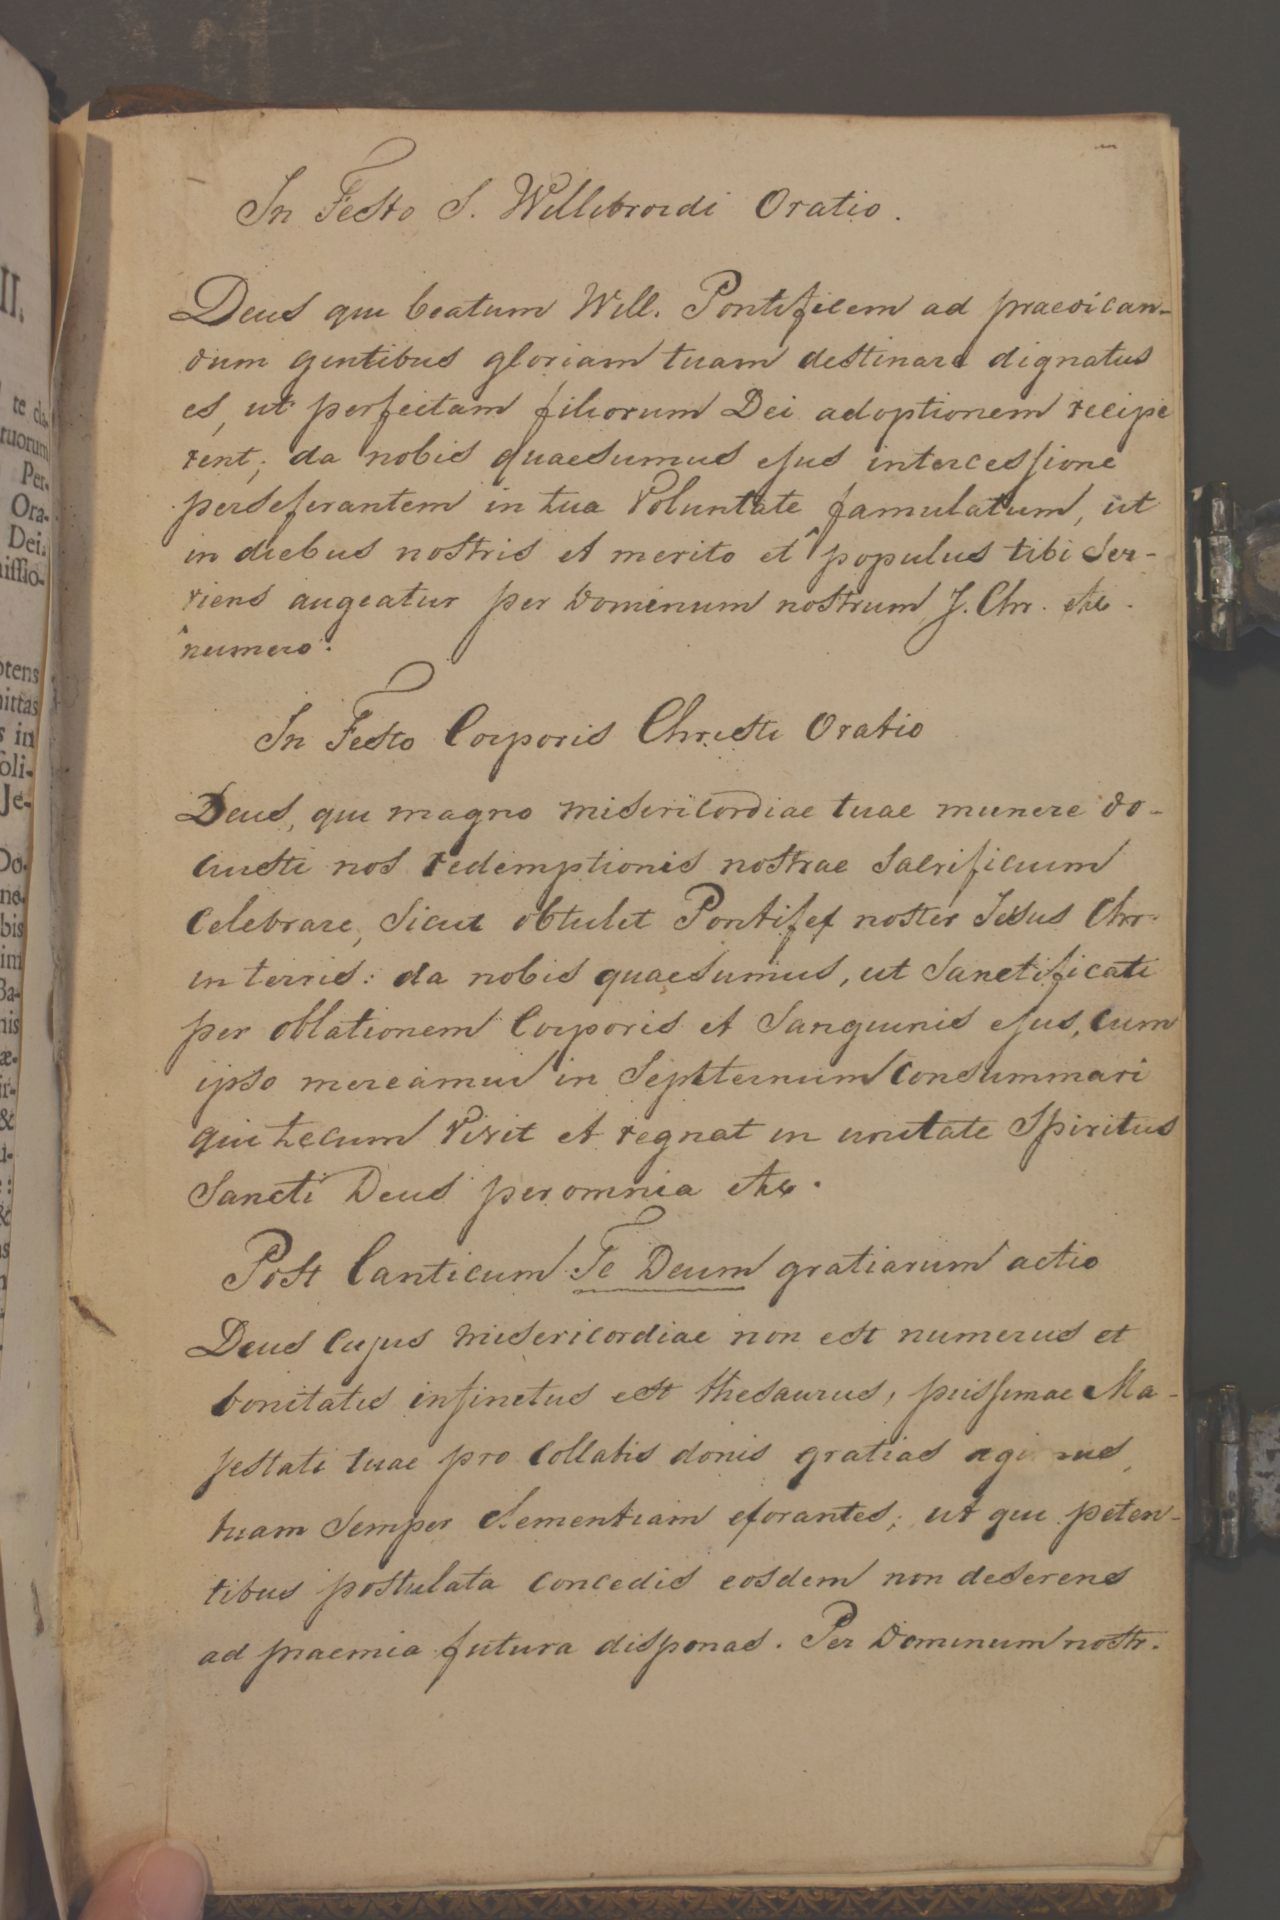 II.
te cla-
tuorum
Per-
Ora-
Dei.
missio-
otens
mittas
s in
soli-
Je-
Do-
ne-
bis
im
Ba-
nis
æ-
&
In Festo S. Willebrordi Oratio.
Deus qui beatum Will. Pontificem ad praedican-
dum gentibus gloriam tuam destinare dignatus
es, ut perfectam filiorum Dei adoptionem recipe
rent; da nobis quaesumus ejus intercessione
perseverantem in tua Voluntate famulatum, ut
in diebus nostris et merito et ^ populus tibi ser-
viens augeatur per Dominum nostrum J. Chr. etc.
^ numero.
In Festo Corporis Christi Oratio
Deus, qui magno misericordiae tuae munere do-
cuisti nos redemptionis nostrae sacrificium
celebrare, sicut obtulit Pontifex noster Jesus Chr.
in terris: da nobis quaesumus, ut sanctificati
per oblationem Corporis et Sanguinis ejus, cum
ipso mereamur in Sempiternum consummari
qui tecum vivit et regnat in unitate Spiritus
Sancti Deus per omnia etc.
Post Canticum Te Deum gratiarum actio
Deus cujus misericordiae non est numerus et
bonitatis infinitus est thesaurus, piissimae Ma-
jestati tuae pro collatis donis gratias agimus,
tuam semper clementiam exorantes; ut qui peten-
tibus postulata concedis eosdem non deserens
ad praemia futura disponas. Per Dominum nostr.